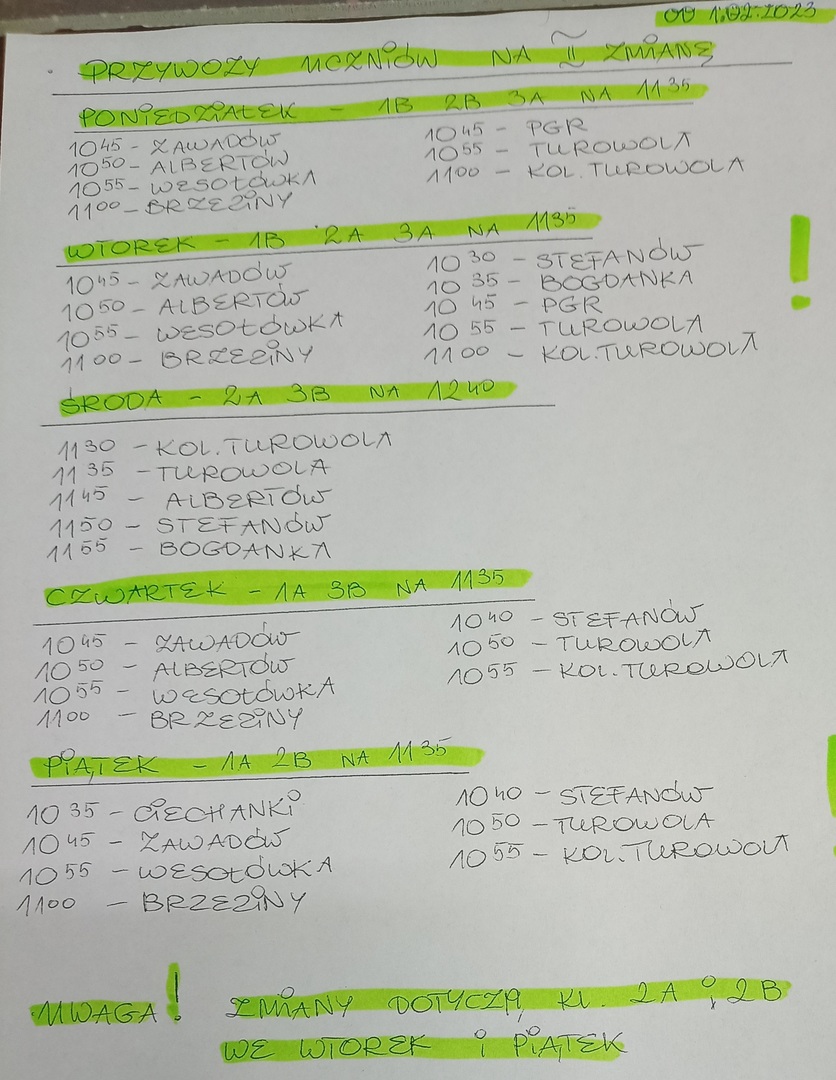 OD 1.02.2023
PRZYWOZY UCZNIÓW NA II ZMIANĘ
PONIEDZIAŁEK - 1B 2B 3A NA 11 35
10 45 - ZAWADÓW
10 50 - ALBERTÓW
10 55 - WESOŁÓWKA
11 00 - BRZEZINY
10 45 - PGR
10 55 - TUROWOLA
11 00 - KOL. TUROWOLA
WTOREK - 1B 2A 3A NA 11 35
10 45 - ZAWADÓW
10 50 - ALBERTÓW
10 55 - WESOŁÓWKA
11 00 - BRZEZINY
10 30 - STEFANÓW
10 35 - BOGDANKA
10 45 - PGR
10 55 - TUROWOLA
11 00 - KOL. TUROWOLA
!
ŚRODA - 2A 3B NA 12 40
11 30 - KOL. TUROWOLA
11 35 - TUROWOLA
11 45 - ALBERTÓW
11 50 - STEFANÓW
11 55 - BOGDANKA
CZWARTEK - 1A 3B NA 11 35
10 45 - ZAWADÓW
10 50 - ALBERTÓW
10 55 - WESOŁÓWKA
11 00 - BRZEZINY
10 40 - STEFANÓW
10 50 - TUROWOLA
10 55 - KOL. TUROWOLA
PIĄTEK - 1A 2B NA 11 35
10 35 - CIECHANKI
10 45 - ZAWADÓW
10 55 - WESOŁÓWKA
11 00 - BRZEZINY
10 40 - STEFANÓW
10 50 - TUROWOLA
10 55 - KOL. TUROWOLA
UWAGA! ZMIANY DOTYCZĄ KL. 2A i 2B
WE WTOREK i PIĄTEK